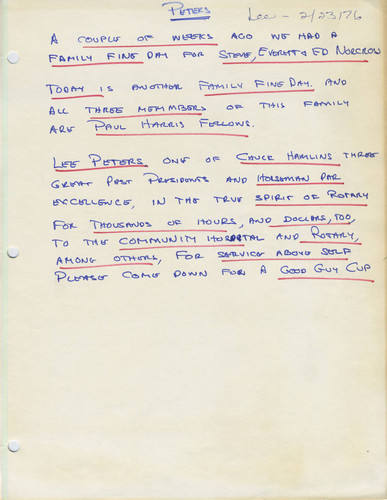 PETERS
Lee - 2/23/76
A COUPLE OF WEEKS AGO WE HAD A
FAMILY FINE DAY FOR STEVE, EVERETT & ED NORCROW
TODAY IS ANOTHER FAMILY FINE DAY. AND
ALL THREE MEMMBERS OF THIS FAMILY
ARE PAUL HARRIS FELLOWS.
LEE PETERS ONE OF CHUCK HAMLINS THREE
GREAT PAST PRESIDENTS AND HORSEMAN PAR
EXCELLENCE, IN THE TRUE SPIRIT OF ROTARY
FOR THOUSANDS OF HOURS, AND DOLLARS, TOO,
TO THE COMMUNITY HOSPITAL AND ROTARY,
AMONG OTHERS, FOR SERVICE ABOVE SELF
PLEASE COME DOWN FOR A GOOD GUY CUP